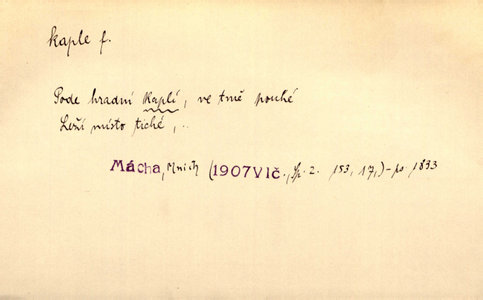 kaple f.
Pode hradní kaplí, ve tmě pouhé
Leží místo tiché, ..
Mácha, Mnich (1907Vlč., Sp. 2. 153, 17,) - po 1833